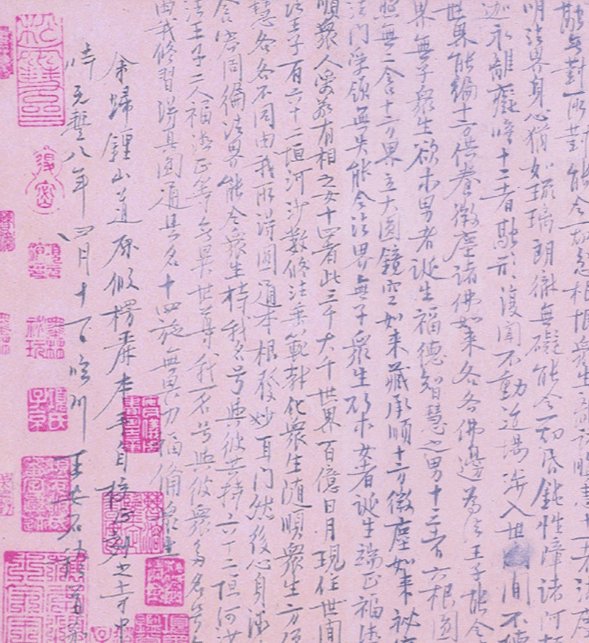 無對所對能令一切忿恨衆生離諸瞋恚十一者
明法界身心猶如琉璃朗徹無礙能令一切昏鈍性障諸阿
迦永離癡暗十二者融形復聞不動道場涉入世間不
世界能徧十方供養微塵諸佛如來各各佛邊爲法王子能令
界無子衆生欲求男者誕生福德智慧之男十三者六根圓
照無二含十方界立大圓鏡空如來藏承順十方微塵如來祕
法門受領無失能令法界無子衆生欲求女者誕生端正福德
順衆人愛敬有相之女十四者此三千大千世界百億日月現住世間
法王子有六十二恒河沙數修法垂範教化衆生隨順衆生方便
慧各各不同由我所得圓通本根發妙耳門然後心身微
含容周徧法界能令衆生持我名号與彼共持六十二恒河沙
法王子二人福德正等無異世尊我一名号與彼衆多名号
由我修習得真圓通是名十四施無畏力福備衆生
余歸鍾山道原假楞嚴本手自校正刻之寺中
時元豐八年四月十一日臨川王安石稽首敬